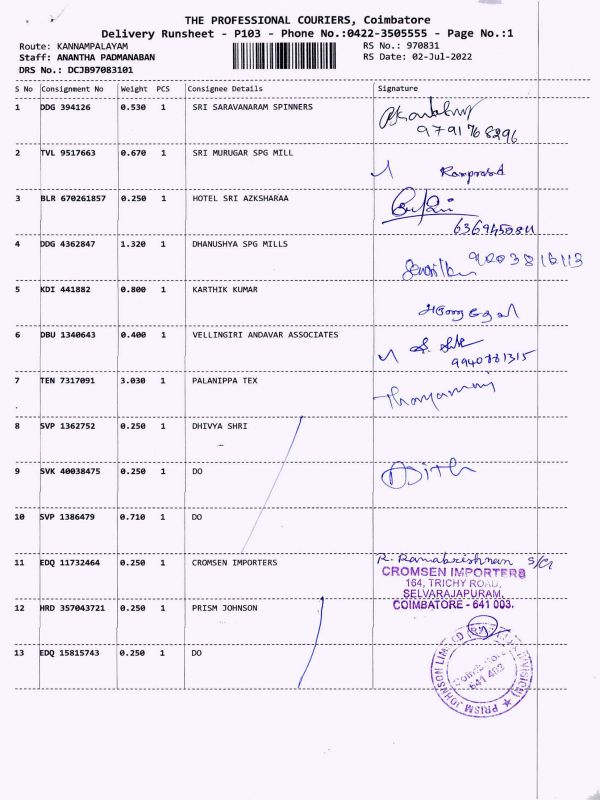 THE PROFESSIONAL COURIERS, Coimbatore
Delivery Runsheet - P103 - Phone No.:0422-3505555 - Page No.:1
Route: KANNAMPALAYAM RS No.: 970831
Staff: ANANTHA PADMANABAN RS Date: 02-Jul-2022
DRS No.: DCJB97083101
S No Consignment No Weight PCS Consignee Details Signature
1 DDG 394126 0.530 1 SRI SARAVANARAM SPINNERS
9791768296
2 TVL 9517663 0.670 1 SRI MURUGAR SPG MILL
Ramprasad
3 BLR 670261857 0.250 1 HOTEL SRI AZKSHARAA
4 DDG 4362847 1.320 1 DHANUSHYA SPG MILLS
5 KDI 441882 0.800 1 KARTHIK KUMAR
6 DBU 1340643 0.400 1 VELLINGIRI ANDAVAR ASSOCIATES
7 TEN 7317091 3.030 1 PALANIPPA TEX
8 SVP 1362752 0.250 1 DHIVYA SHRI
9 SVK 40038475 0.250 1 DO
10 SVP 1386479 0.710 1 DO
11 EDQ 11732464 0.250 1 CROMSEN IMPORTERS R. Ramakrishnan
CROMSEN IMPORTERS
164, TRICHY ROAD,
SELVARAJAPURAM,
COIMBATORE - 641 003.
12 HRD 357043721 0.250 1 PRISM JOHNSON
13 EDQ 15815743 0.250 1 DO
PRISM JOHNSON LIMITED
Coimbatore
641 402